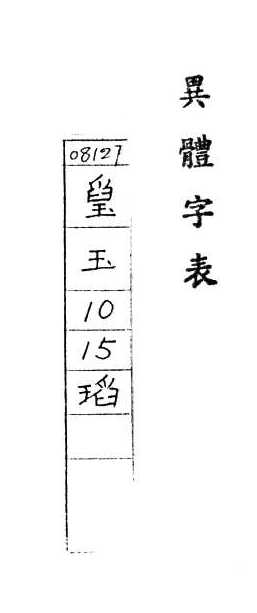 異體字表
08127
玉
10
15
瑫